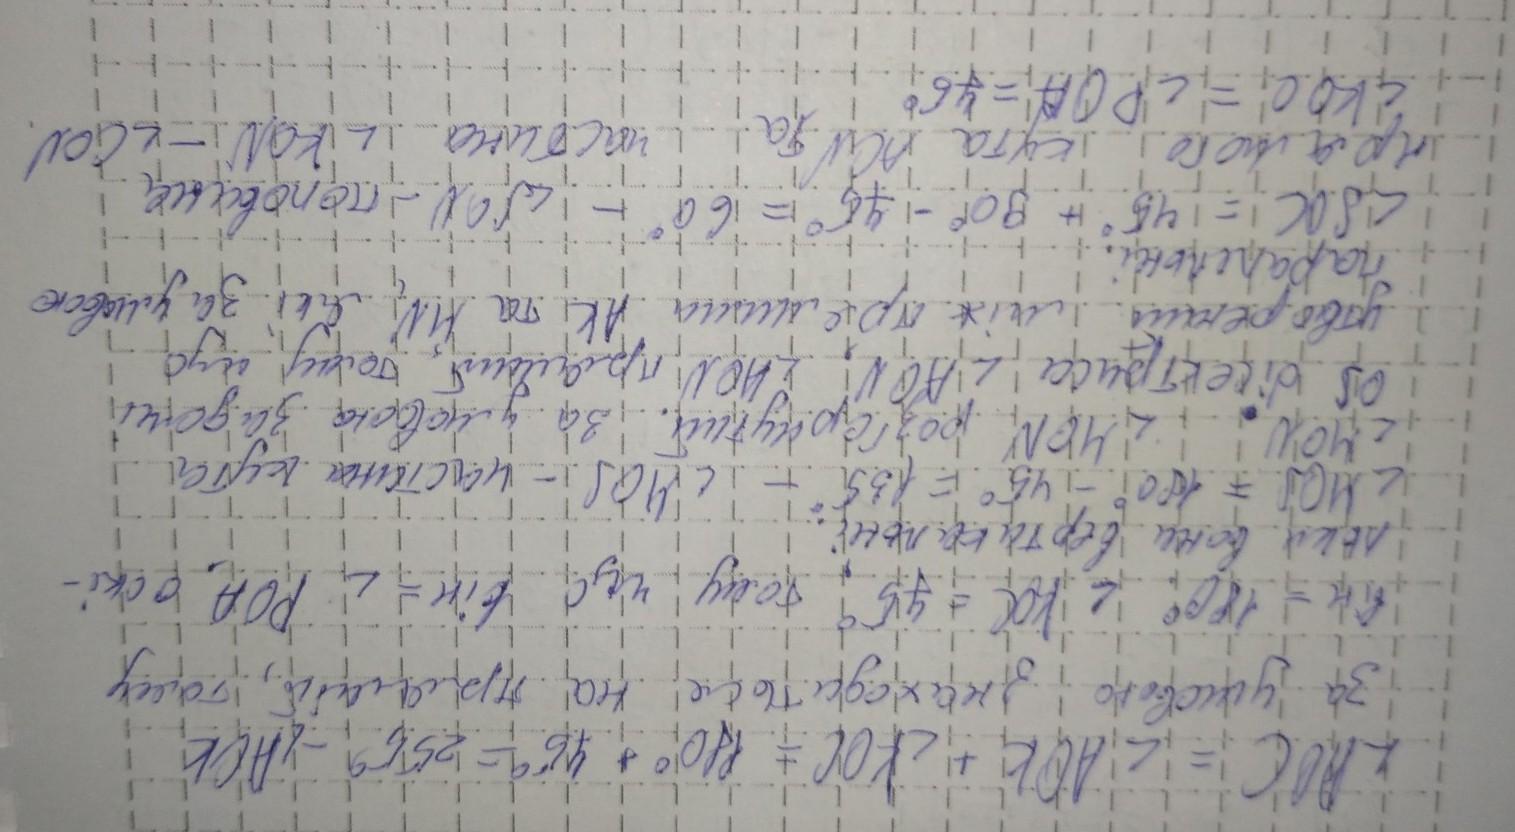 ∠AOC = ∠AOK + ∠KOC = 180° + 75° = 255° - ∠AOK
за умовою знаходиться на прямій, тому
він = 180°. ∠KOC = 75°, тому що він = ∠POA, оскі-
льки вони вертикальні.
∠MOS = 180° - 45° = 135° - ∠MOS - частина кута
∠MON. ∠MON розгорнутий. За умовою задачі
OS бісектриса ∠AON, ∠AON прямий, тому що
утворений між прямими AK та MN, які за умовою
паралельні.
∠SOC = 45° + 90° - 75° = 60° - ∠SON - половина
прямого кута AON та частина ∠KON - ∠CON.
∠KOC = ∠POA = 75°